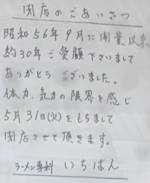 閉店のごあいさつ
昭和56年9月に開業以来
約30年ご愛顧下さいまして
ありがとうございました。
体力、気力の限界を感じ
5月31日(火)をもちまして
閉店させて頂きます。
ラーメン専科 いちばん